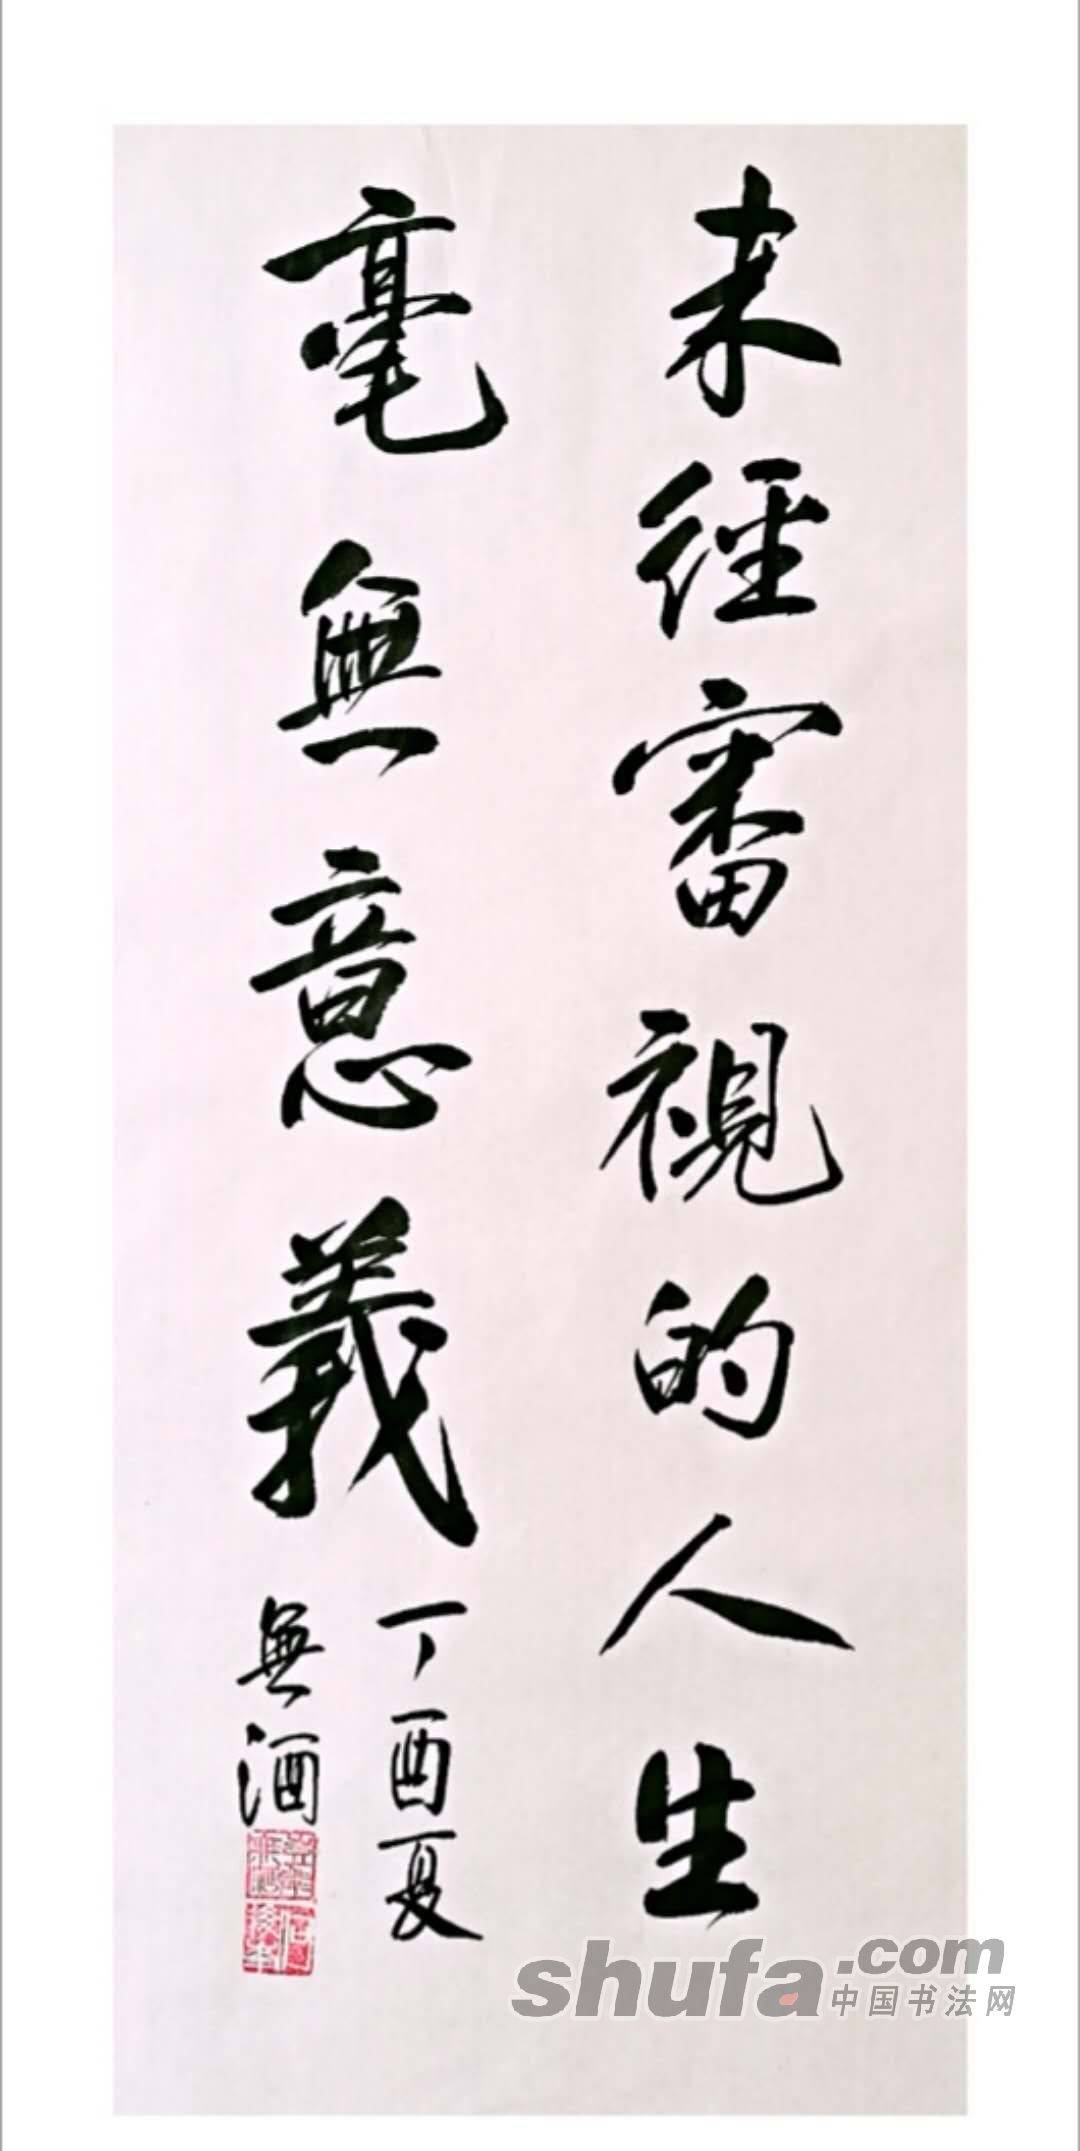 未經審視的人生
毫無意義
丁酉夏
無酒
shufa.com
中国书法网